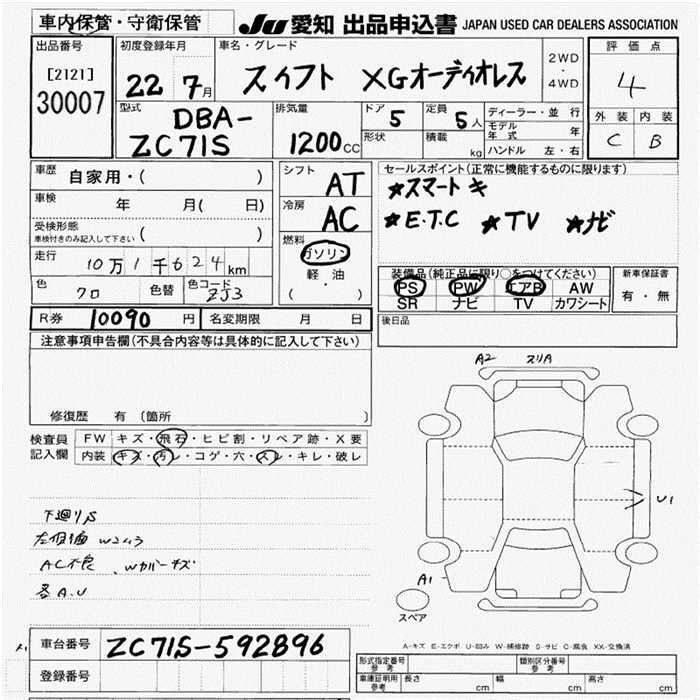 車内保管・守衛保管 JU 愛知 出品申込書 JAPAN USED CAR DEALERS ASSOCIATION
出品番号 初度登録年月 車名・グレード 2WD ・ 4WD 評価点
[2121]
30007 22 7月 スイフト XGオーディオレス 4
型式 排気量 ドア 定員 ディーラー・並行 外装 内装
DBA-
ZC71S 1200CC 5 5人 モデル年式 年 C B
形状 積載 kg ハンドル 左・右
車歴 自家用・( )
シフト AT
セールスポイント(正常に機能するものに限ります)
★スマートキ
車検 年 月( 日)
冷房 AC
★E.T.C ★TV ★ナビ
受検形態
車検付きのみ記入して下さい ( )
燃料 ガソリン
軽・油
( ・ )
走行 10万1千624km
装備品(純正品に限り○をつけてください) 新車保証書
PS PW エアB AW 有・無
SR ナビ TV カワシート
色 クロ 色替 色コード ZJ3
後日品
R券 10090円 名変期限 月 日
注意事項申告欄(不具合内容等は具体的に記入して下さい)
修復歴 有 (箇所
検査員 FW キズ・飛石・ヒビ割・リペア跡・X要
記入欄 内装 キズ・汚レ・コゲ・穴・スレ・キレ・破レ
下廻りS
AC不良 、Wカバーキズ
各A.U
A2
U1
A1
スペア
A-キズ E-エクボ U-凹み W-補修跡 S-サビ C-腐食 XX-交換済
車台番号 ZC71S-592896
登録番号
形式指定番号 参考 類別区分番号 参考
車庫証明用 参考 長さ cm 幅 cm 高さ cm